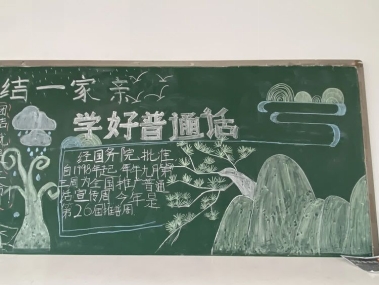 结一家亲
学好普通话
经国务院批准
自1998年起每年九月第
三周为全国推广普通
话宣传周今年是
第26届推普周